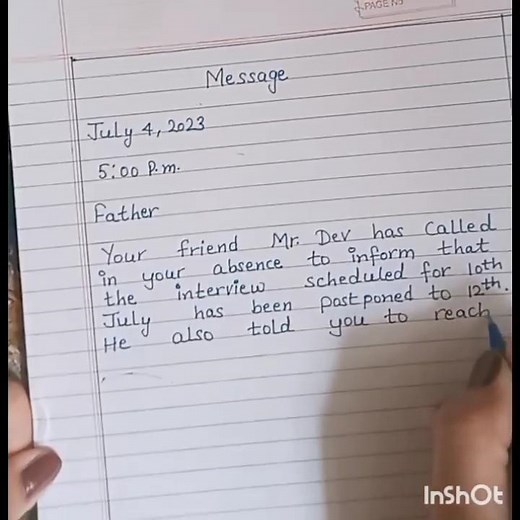 PAGE NO
Message
July 4, 2023
5:00 P.m.
Father
Your friend Mr. Dev has called
in your absence to inform that
the interview scheduled for 10th
July has been postponed to 12th.
He also told you to reach
InShOt